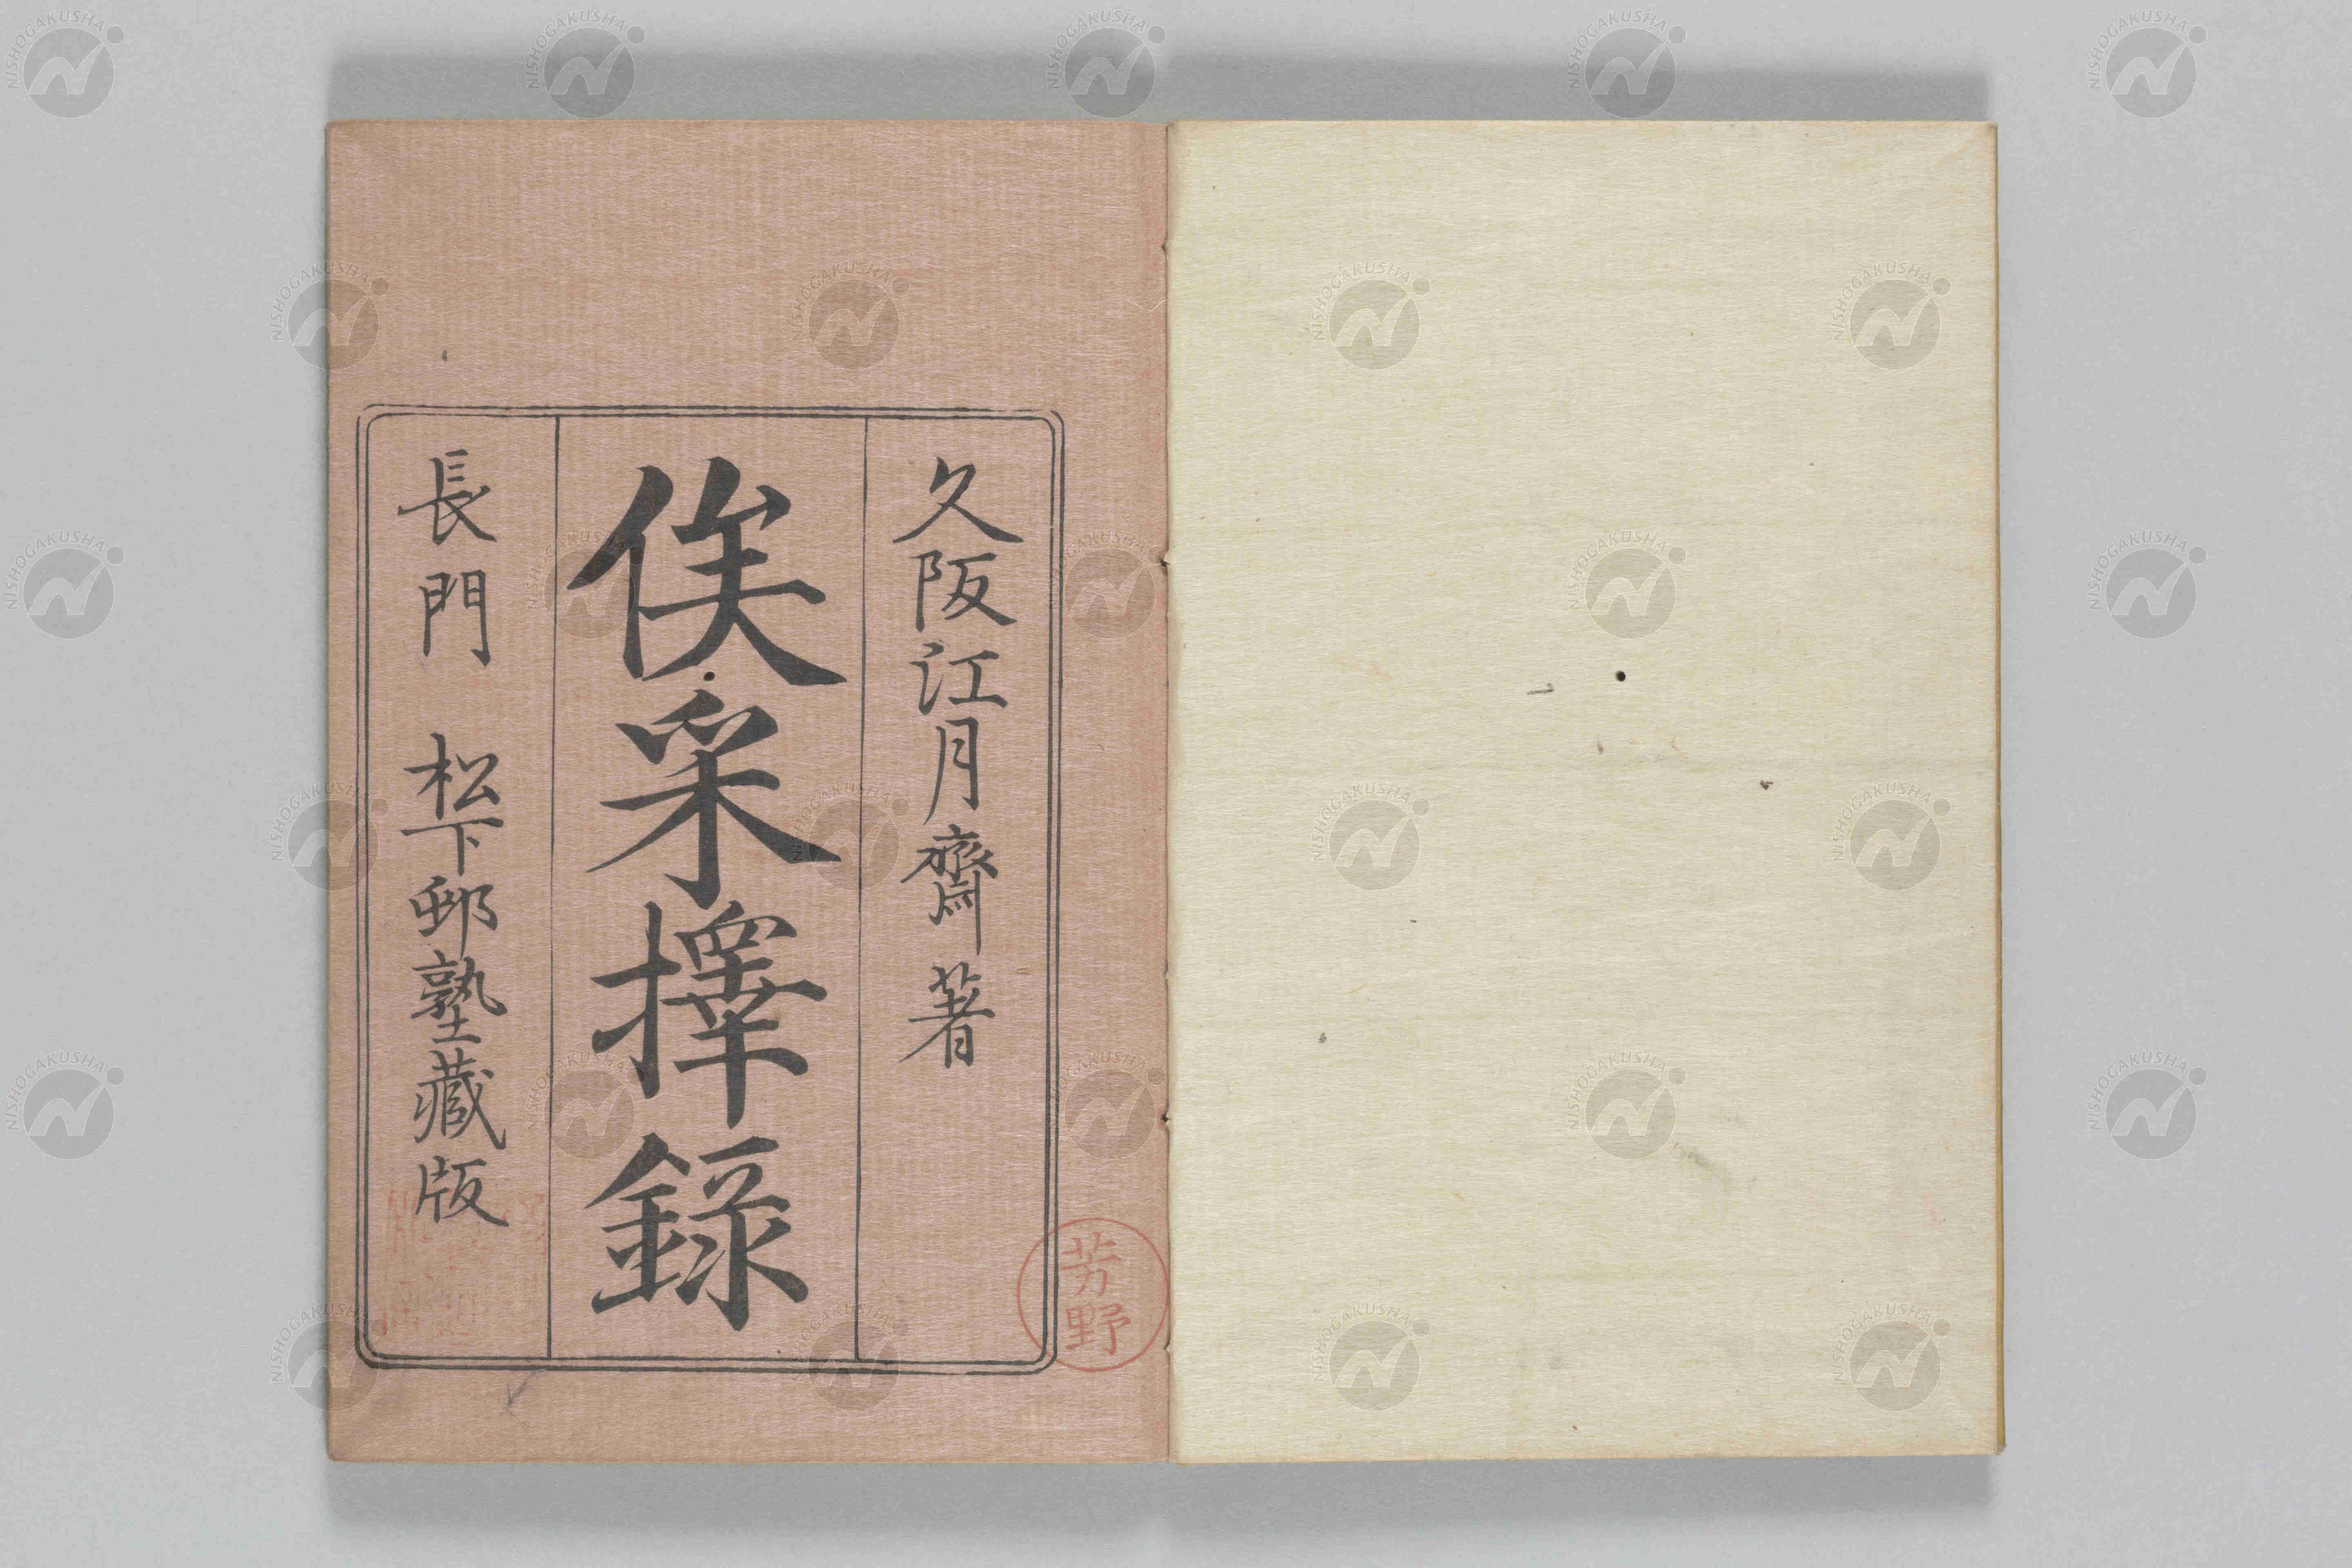 久阪江月齋著
俟采擇錄
長門 松下邨塾藏版
芳野
NISHOGAKUSHA